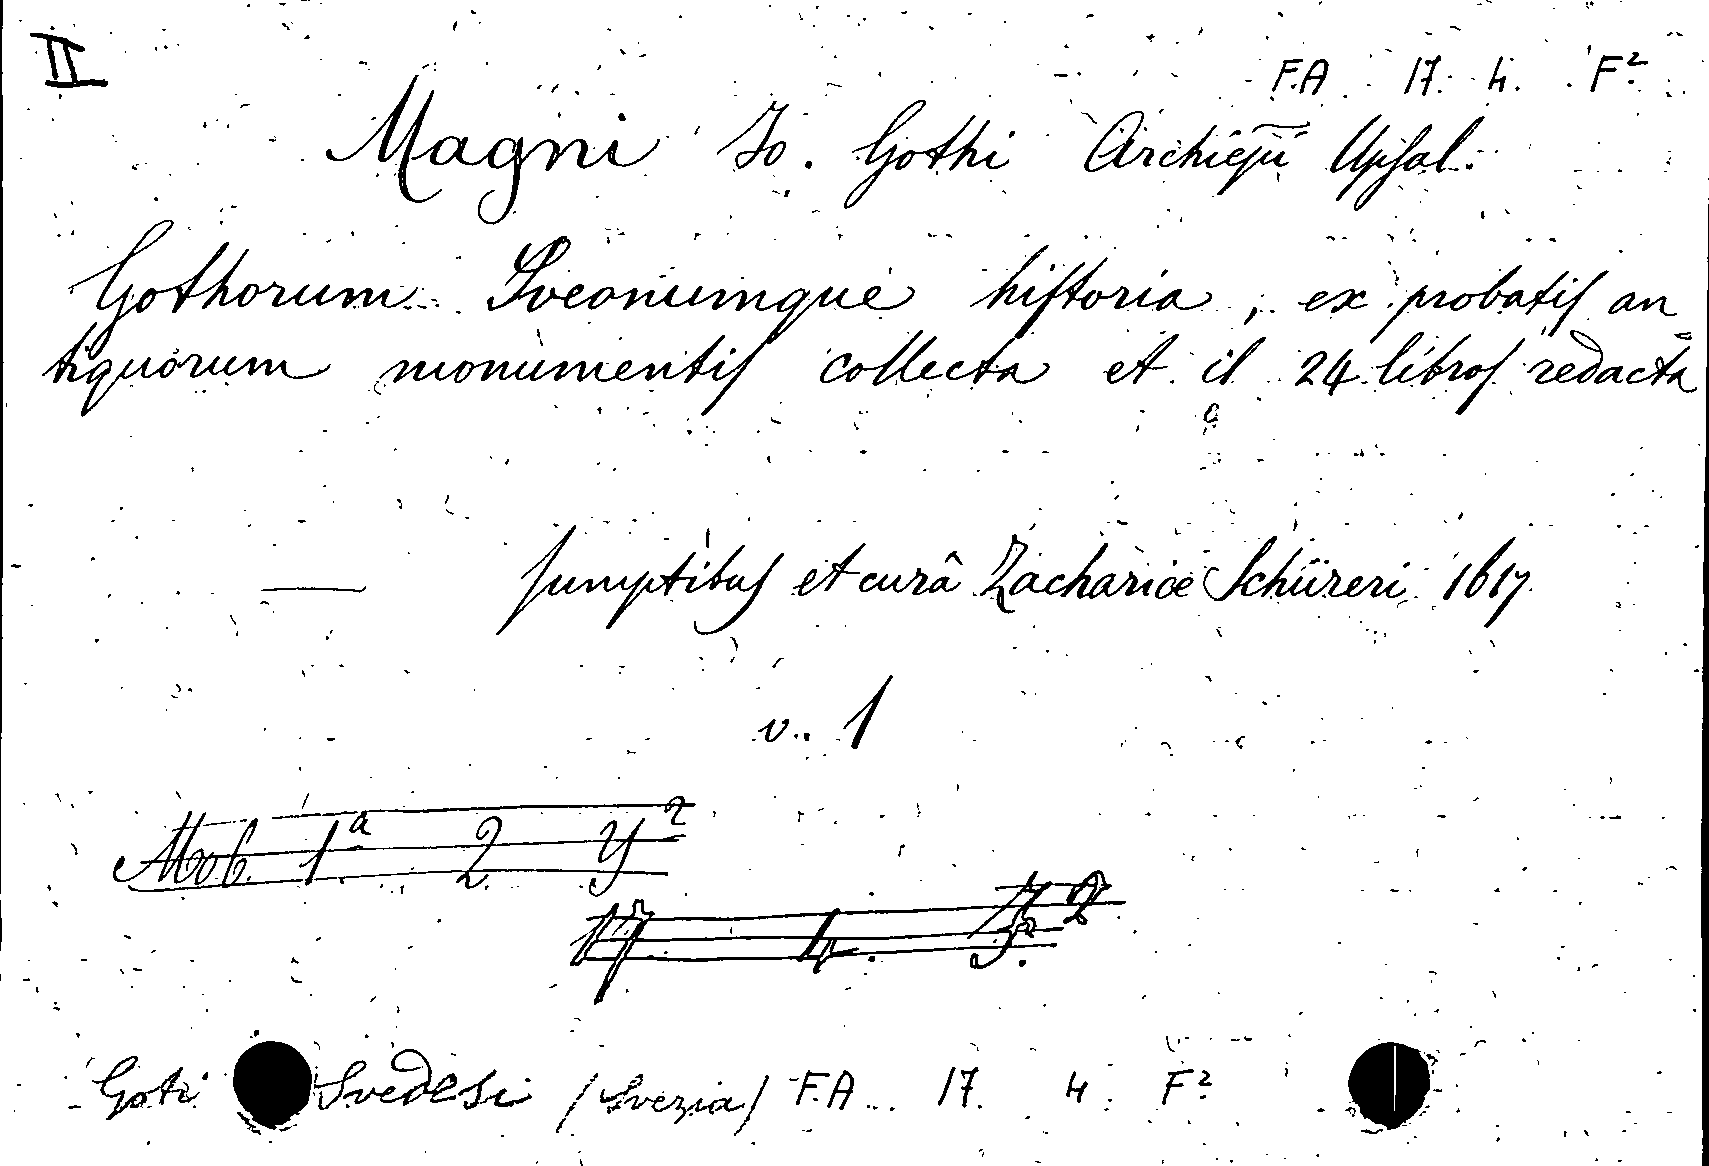 II
F.A 17. 4. F²
Magni Jo. Gothi Archiep̄i Upſal.
Gothorum Sveonumque hiſtoria, ex probatiſ an
tiquorum monumentiſ collecta et iI 24 libroſ redacta
ſumptibuſ et curâ Zachariæ Schüreri 1617
v. 1
Mob. 1ª 2 Y²
17 4. F²
Goti Svedesi /Svezia/ F.A. 17. 4. F²